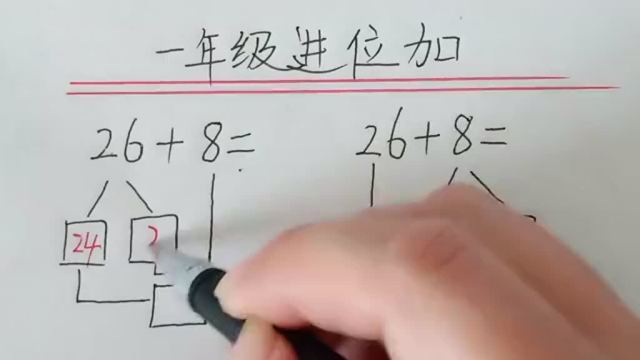 一年级进位加
26+8= 26+8=
24 2